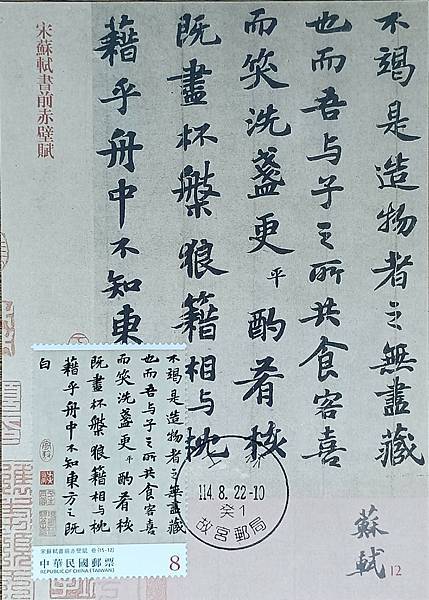 宋蘇軾書前赤壁賦
不竭是造物者之無盡藏
也而吾与子之所共食客喜
而笑洗盞更平酌肴核
既盡杯槃狼籍相与枕
藉乎舟中不知東
不竭是造物者之無盡藏
也而吾与子之所共食客喜
而笑洗盞更平酌肴核
既盡杯槃狼籍相与枕
藉乎舟中不知東方之既
白
宋蘇軾書前赤壁賦 卷(15-12)
中華民國郵票
REPUBLIC OF CHINA (TAIWAN)
8
114.8.22-10
癸1
故宮郵局
蘇軾
12